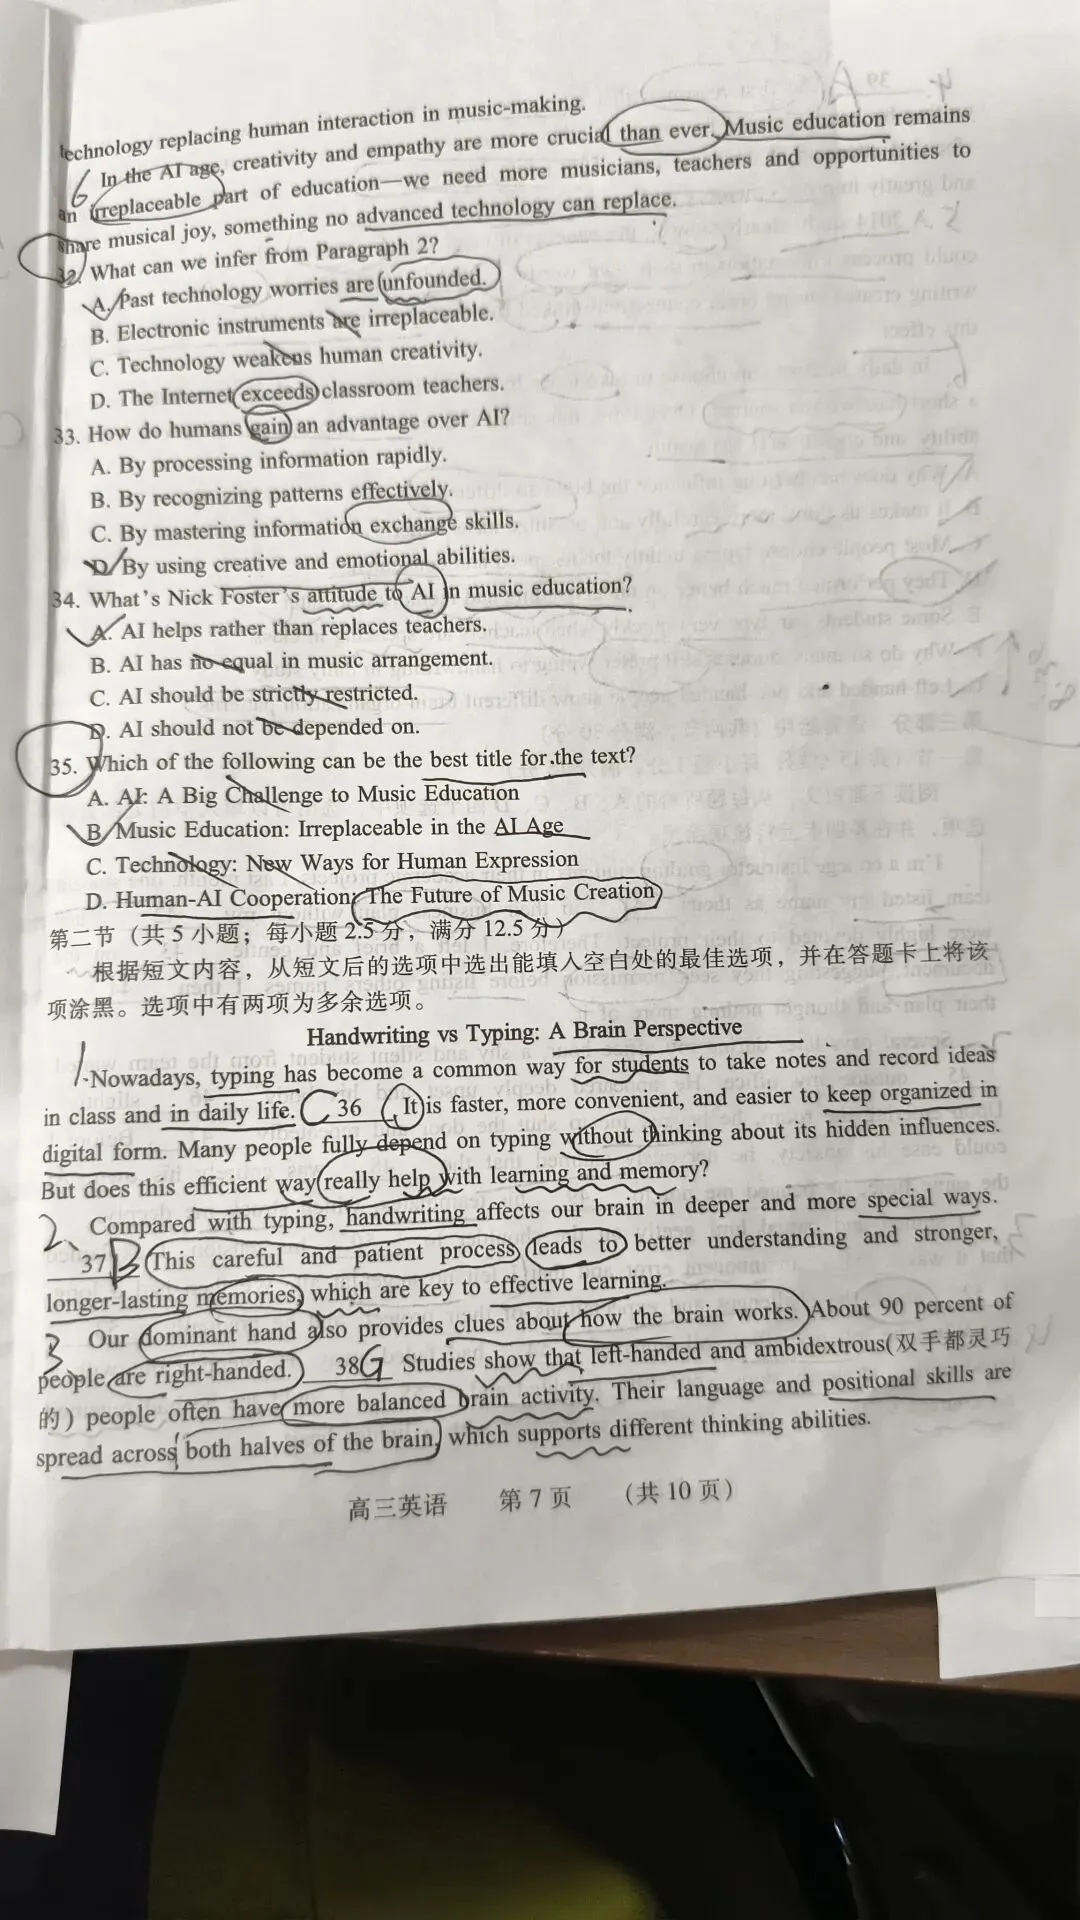 technology replacing human interaction in music-making.
6 In the AI age, creativity and empathy are more crucial than ever. Music education remains
an irreplaceable part of education—we need more musicians, teachers and opportunities to
share musical joy, something no advanced technology can replace.
32. What can we infer from Paragraph 2?
A. Past technology worries are unfounded.
B. Electronic instruments are irreplaceable.
C. Technology weakens human creativity.
D. The Internet exceeds classroom teachers.
33. How do humans gain an advantage over AI?
A. By processing information rapidly.
B. By recognizing patterns effectively.
C. By mastering information exchange skills.
D. By using creative and emotional abilities.
34. What's Nick Foster's attitude to AI in music education?
A. AI helps rather than replaces teachers.
B. AI has no equal in music arrangement.
C. AI should be strictly restricted.
D. AI should not be depended on.
35. Which of the following can be the best title for the text?
A. AI: A Big Challenge to Music Education
B. Music Education: Irreplaceable in the AI Age
C. Technology: New Ways for Human Expression
D. Human-AI Cooperation: The Future of Music Creation
第二节（共 5 小题；每小题 2.5 分，满分 12.5 分）
根据短文内容，从短文后的选项中选出能填入空白处的最佳选项，并在答题卡上将该
项涂黑。选项中有两项为多余选项。
Handwriting vs Typing: A Brain Perspective
1. Nowadays, typing has become a common way for students to take notes and record ideas
in class and in daily life. C 36 It is faster, more convenient, and easier to keep organized in
digital form. Many people fully depend on typing without thinking about its hidden influences.
But does this efficient way really help with learning and memory?
2. Compared with typing, handwriting affects our brain in deeper and more special ways.
37 B This careful and patient process leads to better understanding and stronger,
longer-lasting memories, which are key to effective learning.
3 Our dominant hand also provides clues about how the brain works. About 90 percent of
people are right-handed. 38 G Studies show that left-handed and ambidextrous(双手都灵巧
的) people often have more balanced brain activity. Their language and positional skills are
spread across both halves of the brain, which supports different thinking abilities.
高三英语 第 7 页 （共 10 页）